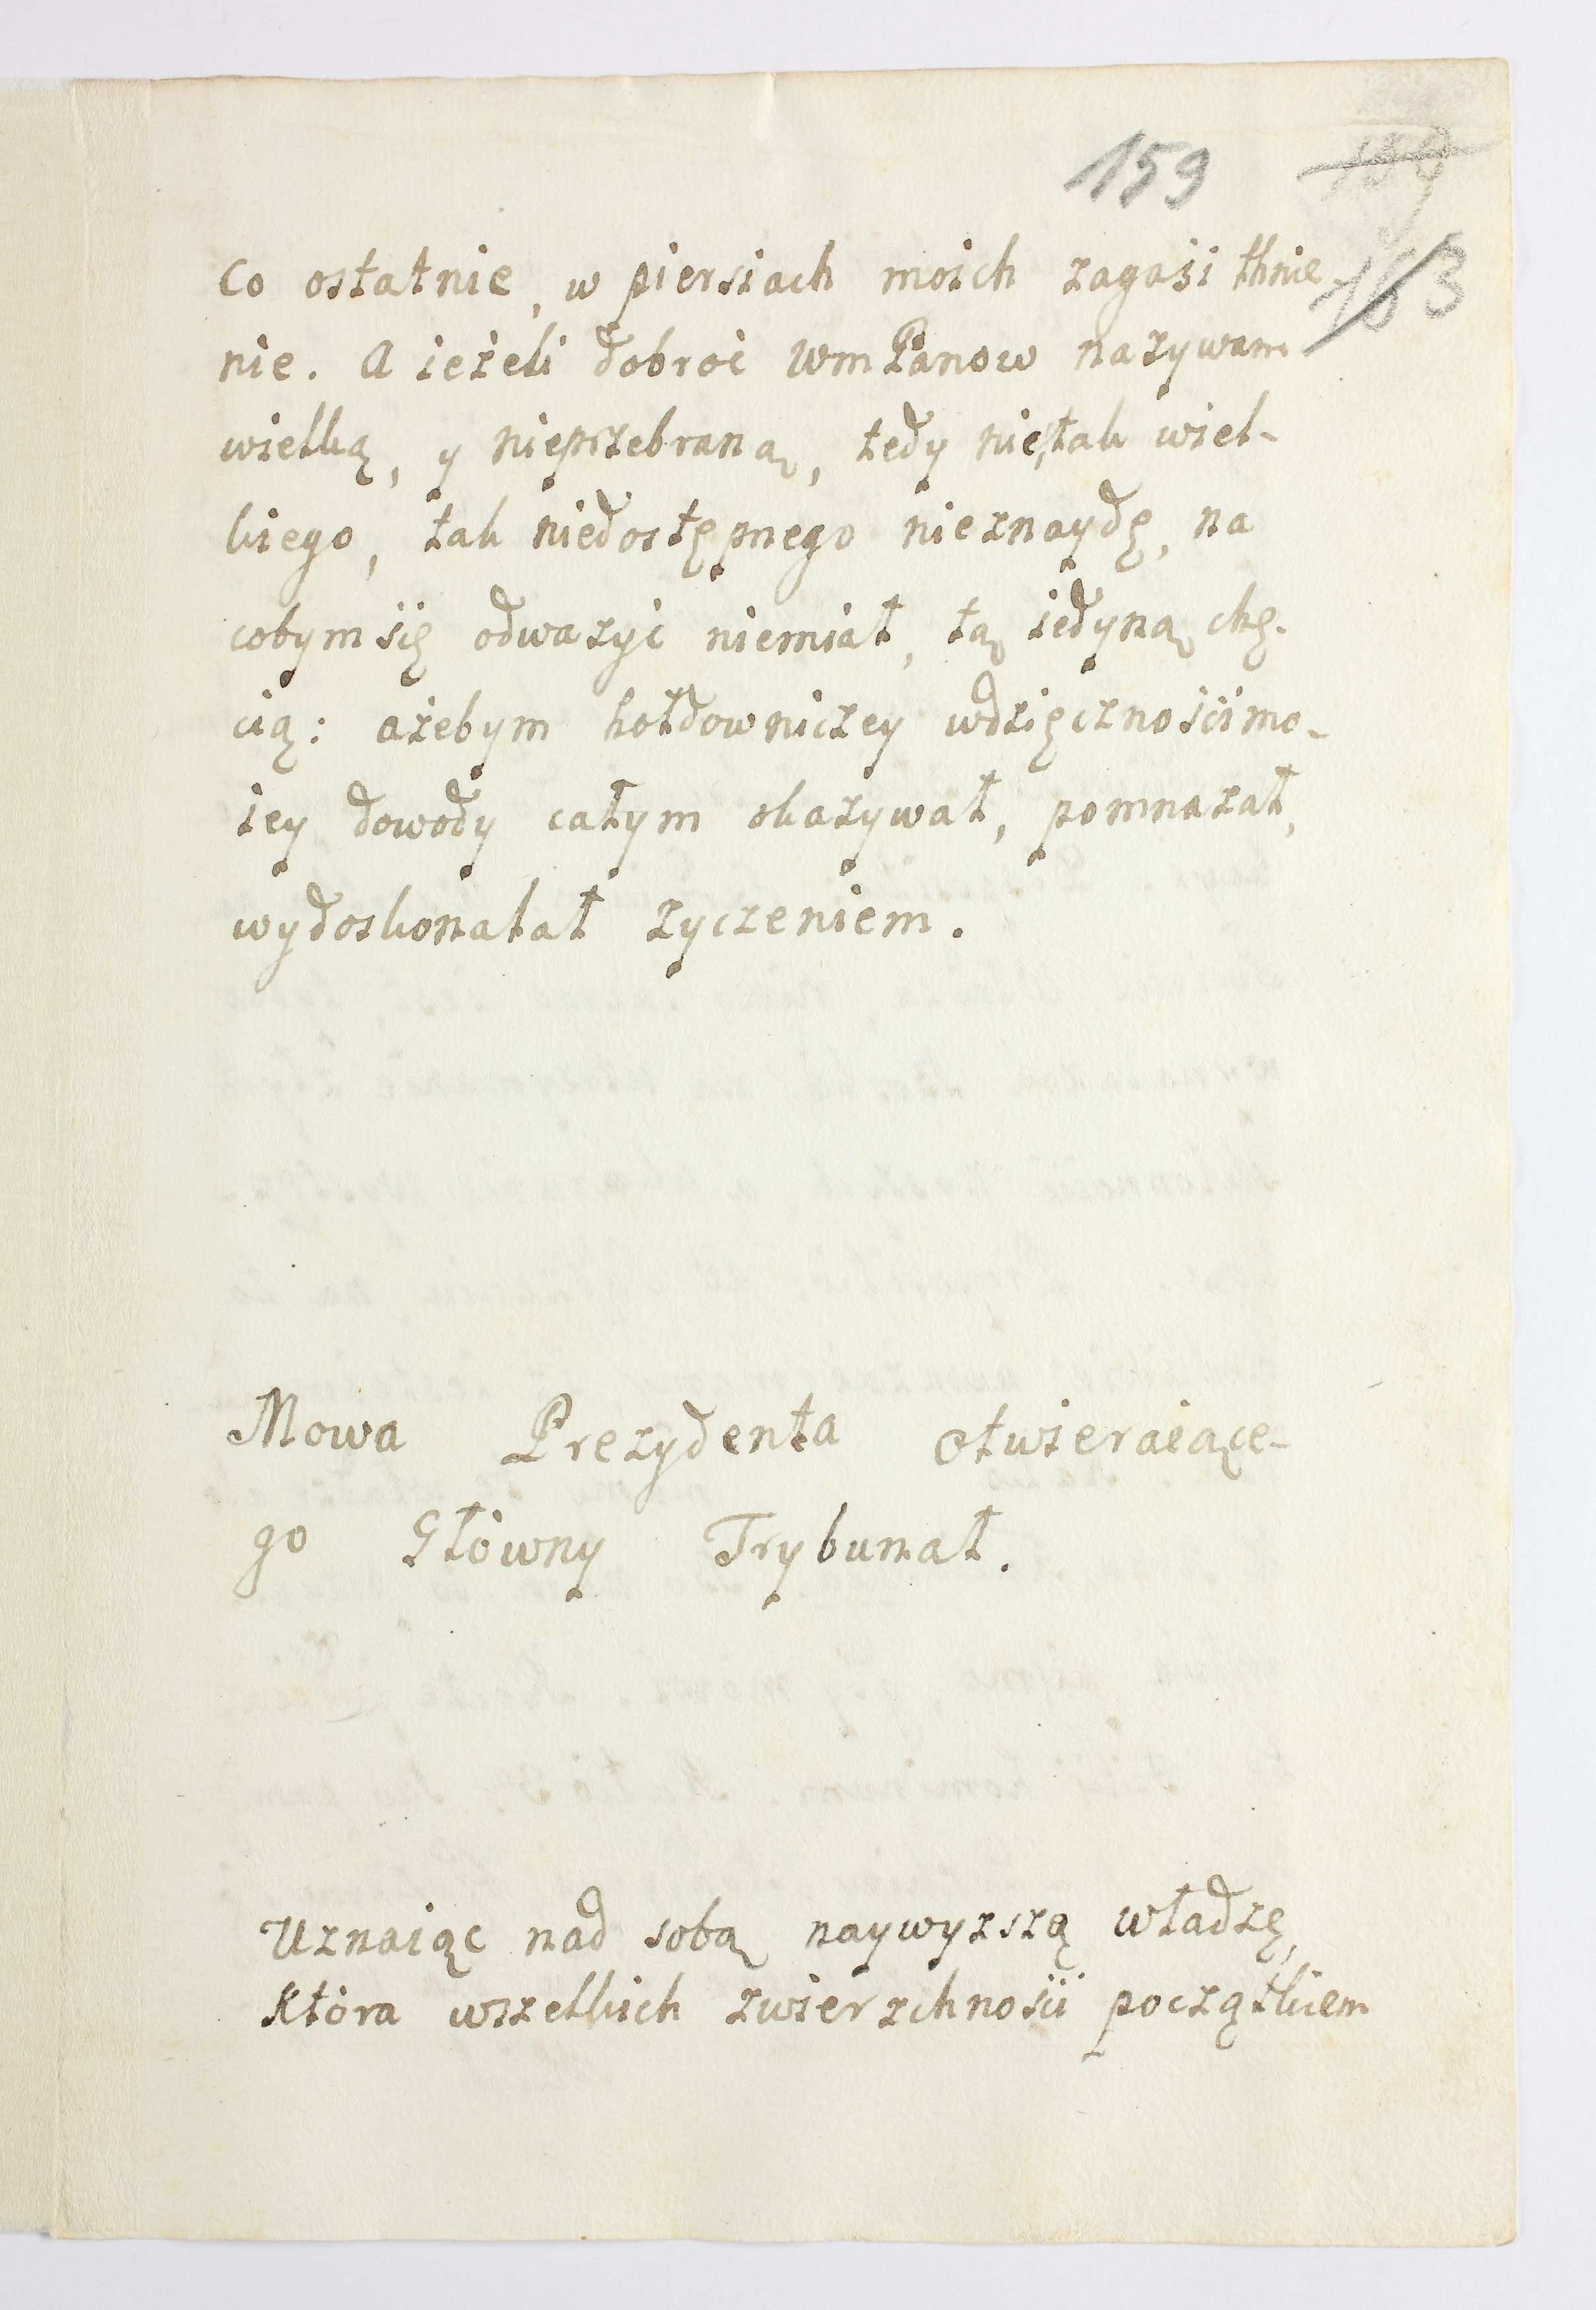 159 159
163
Co ostatnie, w piersiach moich zagasi thnie-
nie. A ieżeli dobroć WmPanow nazywam
wielką, y nieprzebraną, tedy nie tak wiel-
kiego, tak niedostępnego nieznaydę, na
cobym się odwazyć niemiał, tą iedyną chę-
cią: ażebym hołdowniczey wdzięcznośći mo-
iey dowody całym okazywał, pomnazał,
wydoskonalał zyczeniem.
Mowa Prezydenta otwieraiące-
go Główny Trybunał.
Uznaiąc nad sobą naywyzszą władzę,
Która wszelkich zwierzchnośći początkiem